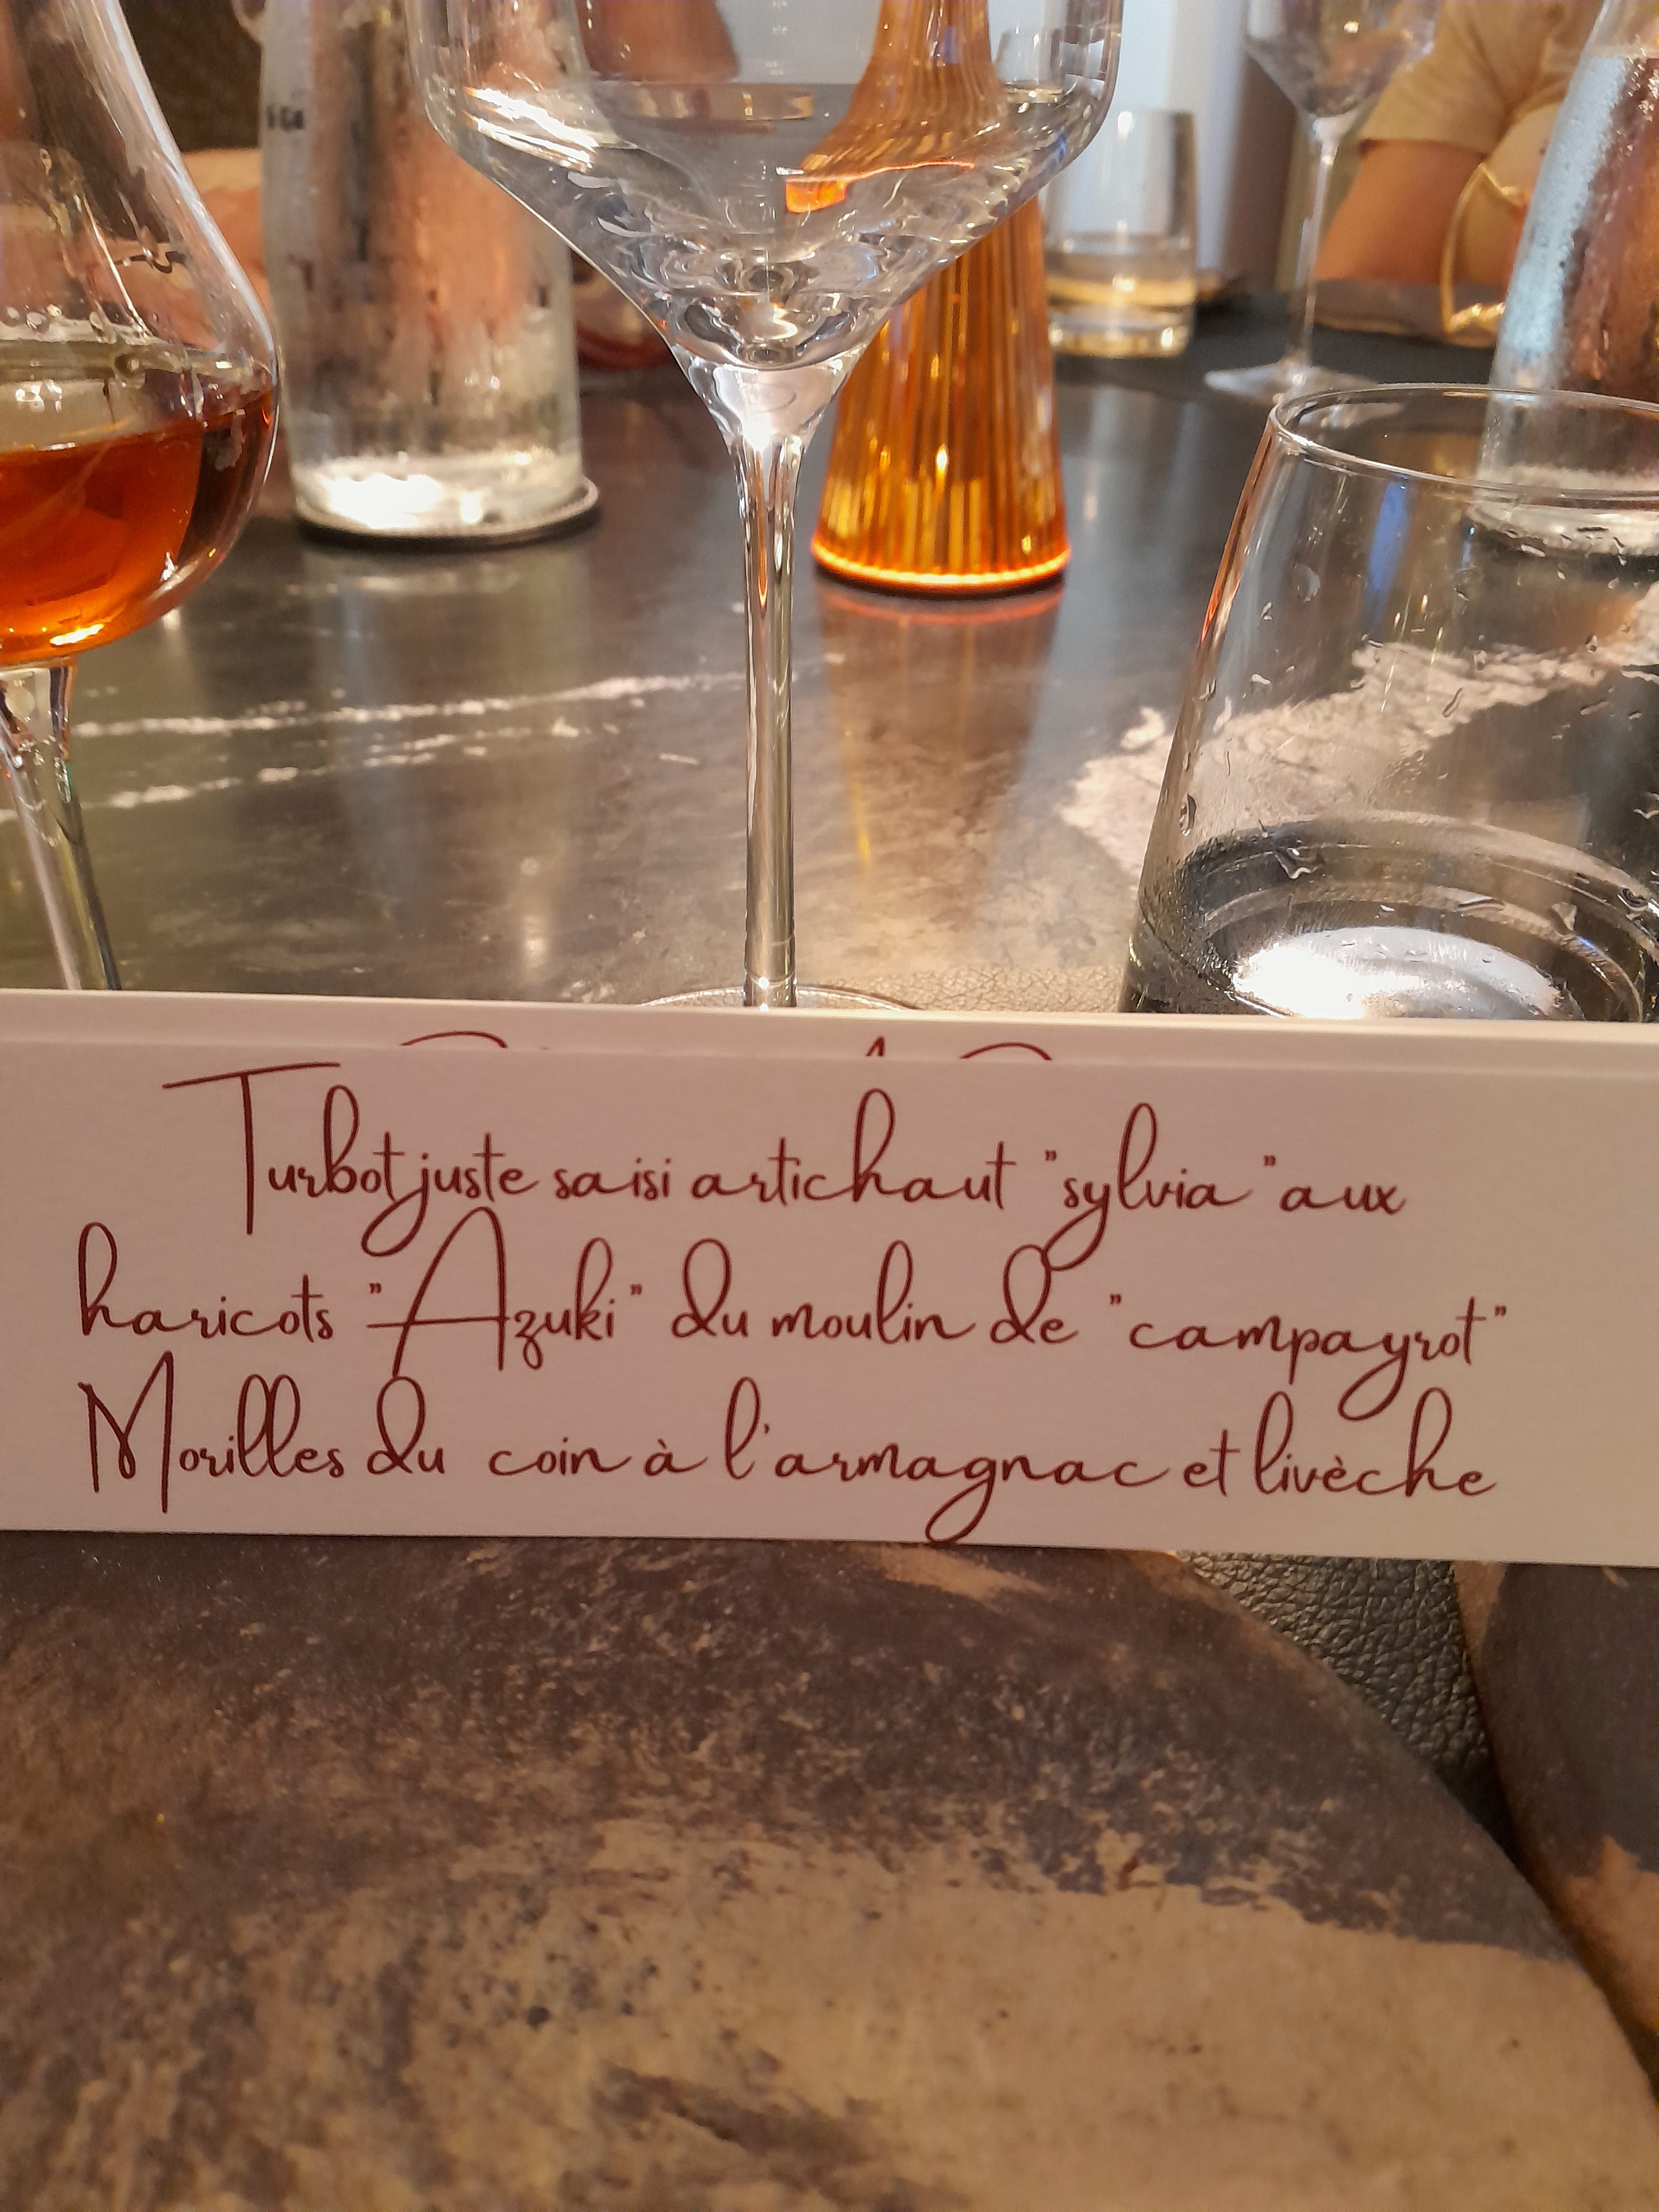 Turbot juste saisi artichaut "sylvia" aux
haricots "Azuki" du moulin de "campayrot"
Morilles du coin à l'armagnac et livèche